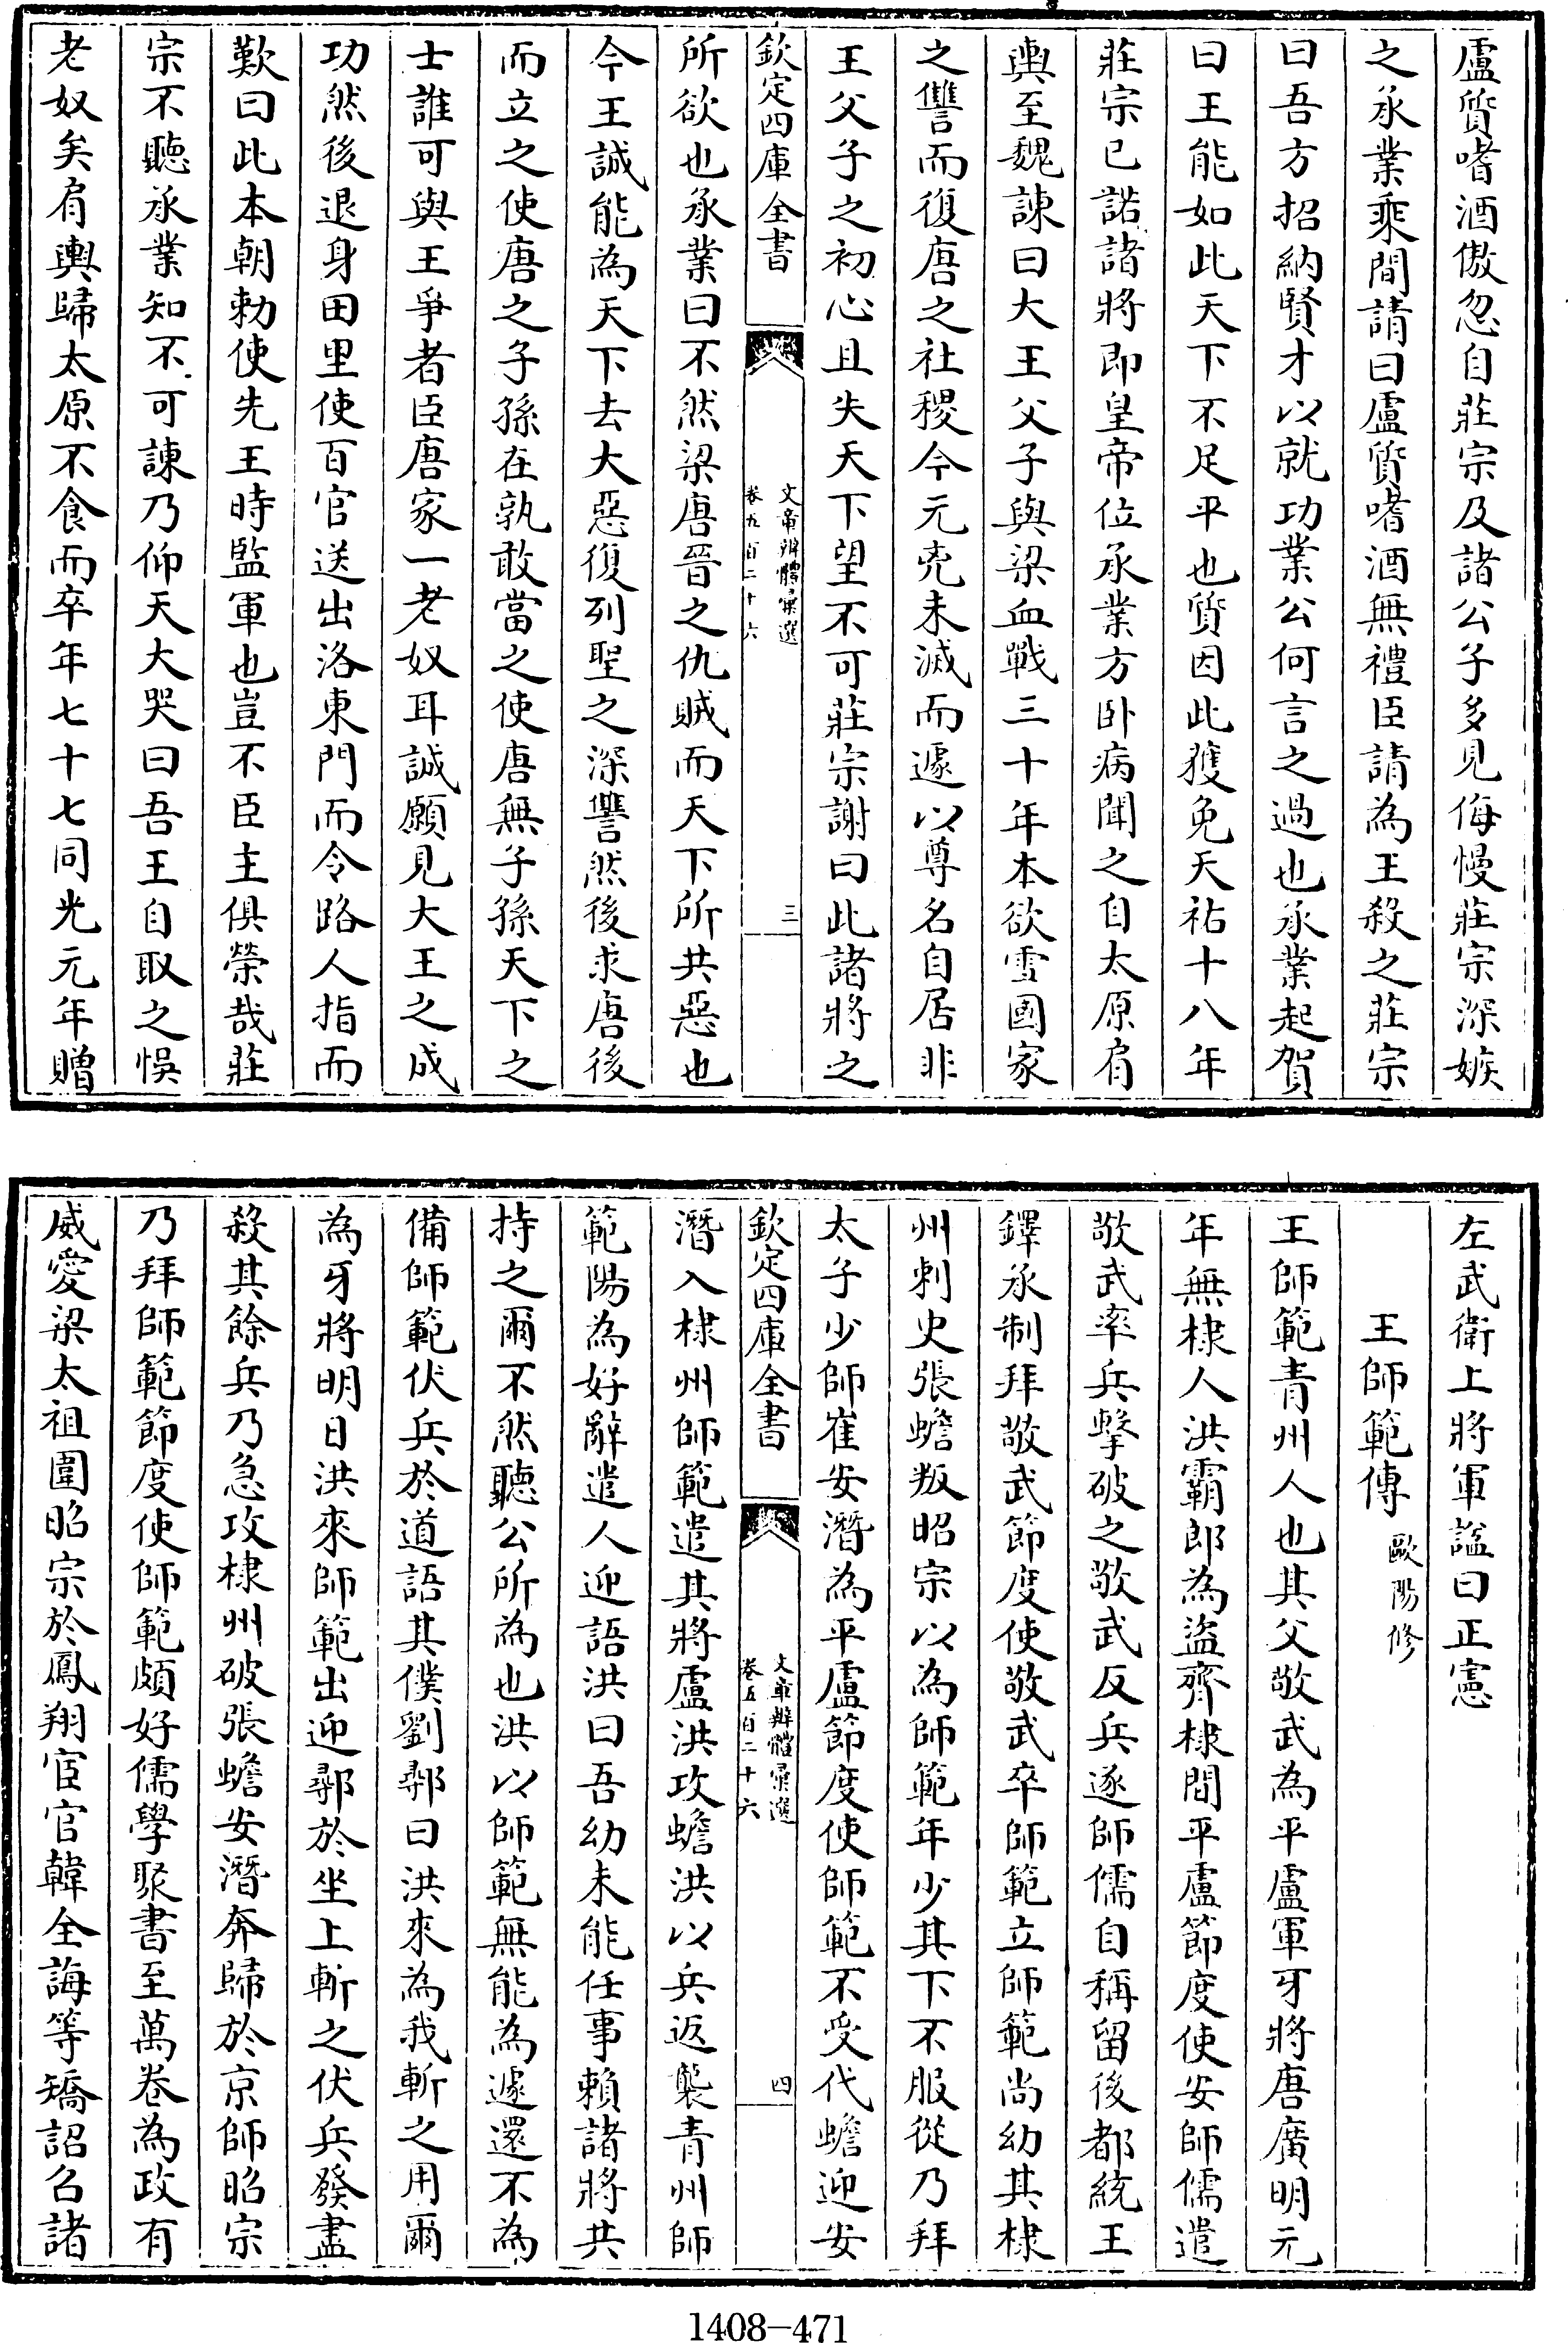 盧質嗜酒傲忽自莊宗及諸公子多見侮慢莊宗深嫉
之承業乘間請曰盧質嗜酒無禮臣請為王殺之莊宗
曰吾方招納賢才以就功業公何言之過也承業起賀
曰王能如此天下不足平也質因此獲免天祐十八年
莊宗已諾諸將即皇帝位承業方卧病聞之自太原肩
輿至魏諫曰大王父子與梁血戰三十年本欲雪國家
之讐而復唐之社稷今元兇未滅而遽以尊名自居非
王父子之初心且失天下望不可莊宗謝曰此諸將之
欽定四庫全書
文章辨體彙選
卷五百二十六
三
所欲也承業曰不然梁唐晉之仇賊而天下所共惡也
今王誠能為天下去大惡復列聖之深讐然後求唐後
而立之使唐之子孫在孰敢當之使唐無子孫天下之
士誰可與王爭者臣唐家一老奴耳誠願見大王之成
功然後退身田里使百官送出洛東門而令路人指而
歎曰此本朝勅使先王時監軍也豈不臣主俱榮哉莊
宗不聽承業知不可諫乃仰天大哭曰吾王自取之悞
老奴矣肩輿歸太原不食而卒年七十七同光元年贈
左武衛上將軍諡曰正憲
王師範傳 歐陽修
王師範青州人也其父敬武為平盧軍牙將唐廣明元
年無棣人洪霸郎為盜齊棣間平盧節度使安師儒遣
敬武率兵擊破之敬武反兵逐師儒自稱留後都統王
鐸承制拜敬武節度使敬武卒師範立師範尚幼其棣
州刺史張蟾叛昭宗以為師範年少其下不服從乃拜
太子少師崔安潛為平盧節度使師範不受代蟾迎安
欽定四庫全書
文章辨體彙選
卷五百二十六
四
潛入棣州師範遣其將盧洪攻蟾洪以兵返襲青州師
範陽為好辭遣人迎語洪曰吾幼未能任事賴諸將共
持之爾不然聽公所為也洪以師範無能為遽還不為
備師範伏兵於道語其僕劉鄩曰洪來為我斬之用爾
為牙將明日洪來師範出迎鄩於坐上斬之伏兵發盡
殺其餘兵乃急攻棣州破張蟾安潛奔歸於京師昭宗
乃拜師範節度使師範頗好儒學聚書至萬卷為政有
威愛梁太祖圍昭宗於鳳翔宦官韓全誨等矯詔召諸
1408-471